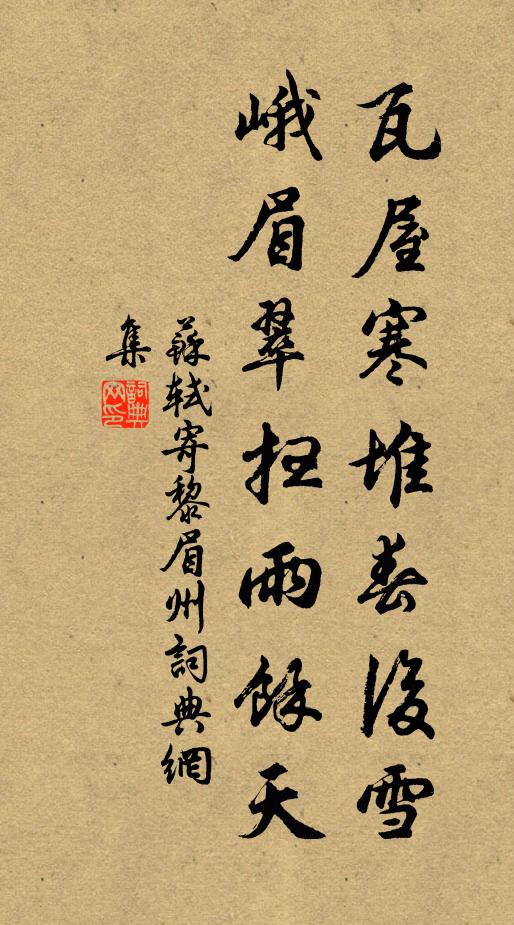 瓦屋寒堆春後雪
峨眉翠掃雨餘天
蘇軾寄黎眉州詞典網
集
詞典
网印